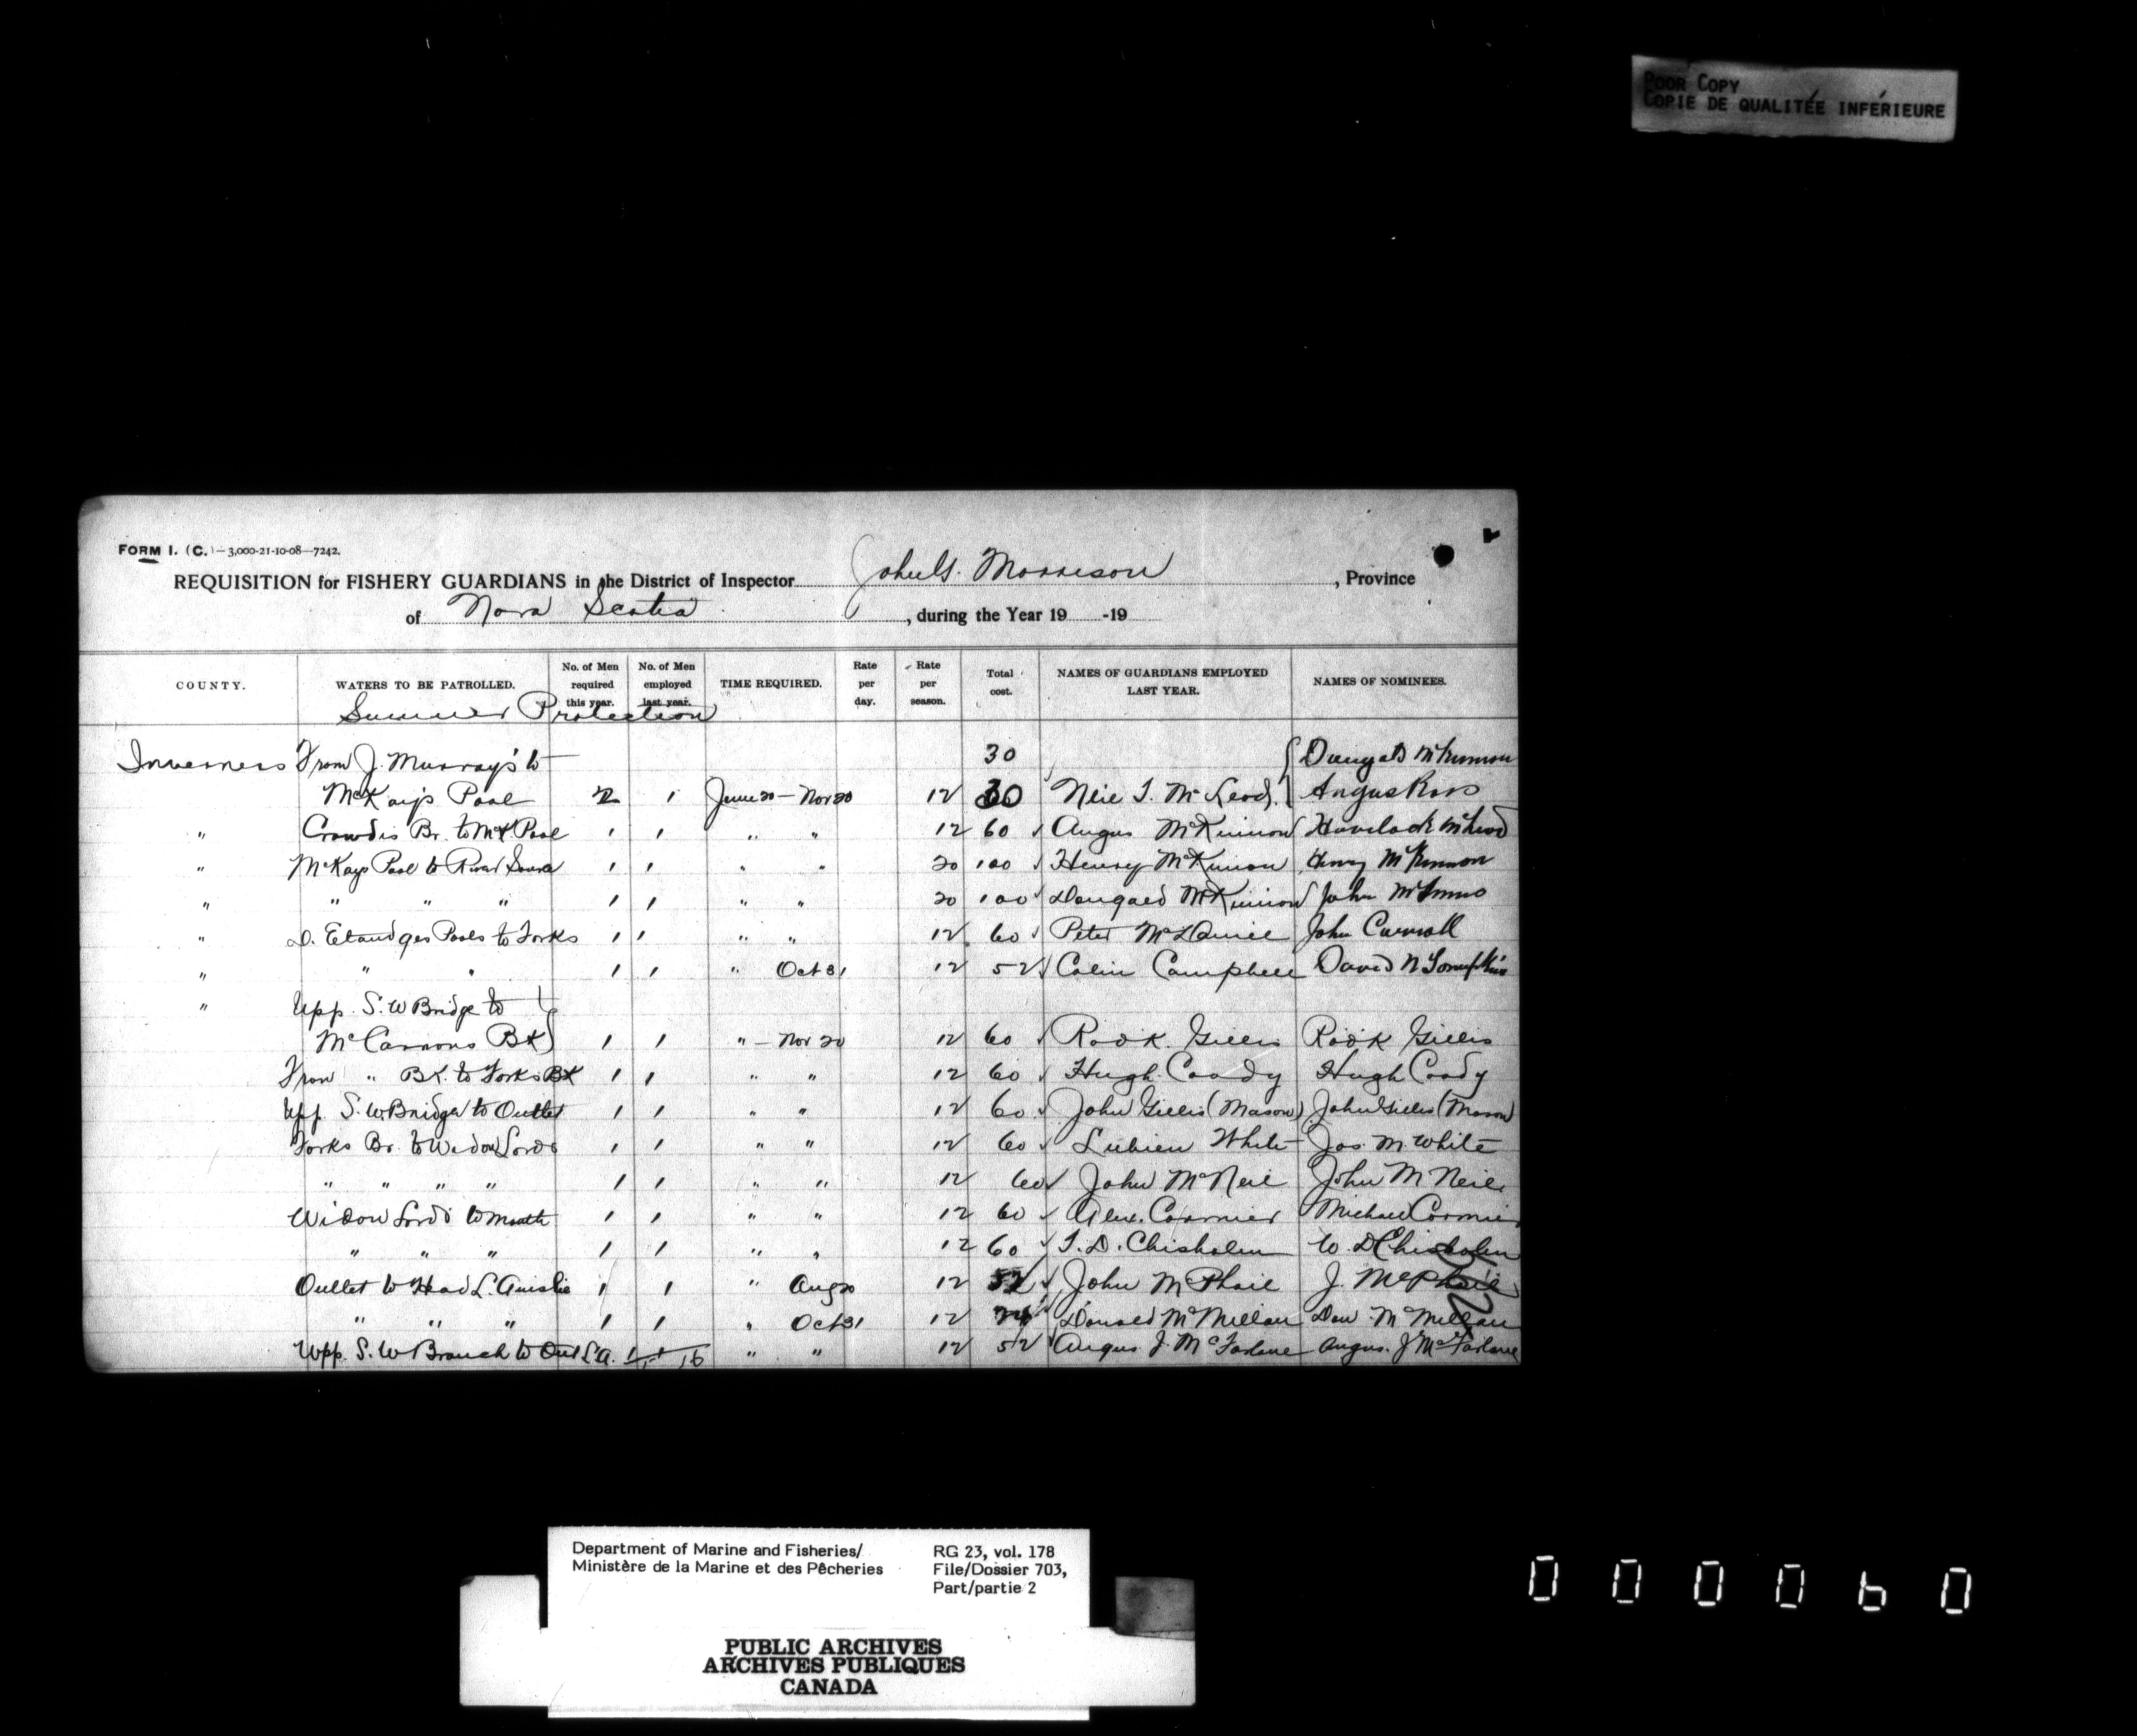 POOR COPY
COPIE DE QUALITÉE INFÉRIEURE
FORM 1. (C.)—3,000-21-10-08—7242.
REQUISITION for FISHERY GUARDIANS in the District of Inspector Morrison, Province
of Nova Scotia, during the Year 19 -19
COUNTY. WATERS TO BE PATROLLED. No. of Men required this year. No. of Men employed last year. TIME REQUIRED. Rate per day. Rate per season. Total cost. NAMES OF GUARDIANS EMPLOYED LAST YEAR. NAMES OF NOMINEES.
Summer Protection
Inverness From J. Murray's to 30
McKay's Pool 2 1 June 20 — Nov 20 12 30 McLeod Angus Ross
" Crowdis Br. to McK. Pool 1 1 " " 12 60 Angus McKinnon Havelock McLeod
" McKays Pool to 1 1 " " 20 100 Henry McKinnon Henry McKinnon
" " " " 1 1 " " 20 100 Dougald McKinnon John
" Pools to Forks 1 1 " " 12 60 Peter McDaniel John Carroll
" " " 1 1 " Oct 31 12 52 Colin Campbell David
" Upp. S. W Bridge to
Bk 1 1 " — Nov 20 12 60 Rod'k. Gillis Rod'k Gillis
From " Bk. to Forks Bk 1 1 " " 12 60 Hugh Coady Hugh Coady
Upp. S. W Bridge to Outlet 1 1 " " 12 60 John Gillis (Mason) John Gillis (Mason)
Forks Br. to Widow Lords 1 1 " " 12 60 White Jas. M. White
" " " " 1 1 " " 12 60 John McNeil John McNeil
Widow Lords to mouth 1 1 " " 12 60 Alex. Cormier Michael Cormier
" " " 1 1 " " 12 60 D. Chisholm W. D Chisholm
Outlet to Head L. Ainslie 1 1 " Aug 20 12 John McPhail J. McPhail
" " " 1 1 " Oct 31 12 Donald McMillan Don. McMillan
Upp. S. W Branch to Out L.A. 1 1 16 " " 12 52 Angus J. McFarlane Angus. J McFarlane
Department of Marine and Fisheries/
Ministère de la Marine et des Pêcheries
RG 23, vol. 178
File/Dossier 703,
Part/partie 2
PUBLIC ARCHIVES
ARCHIVES PUBLIQUES
CANADA